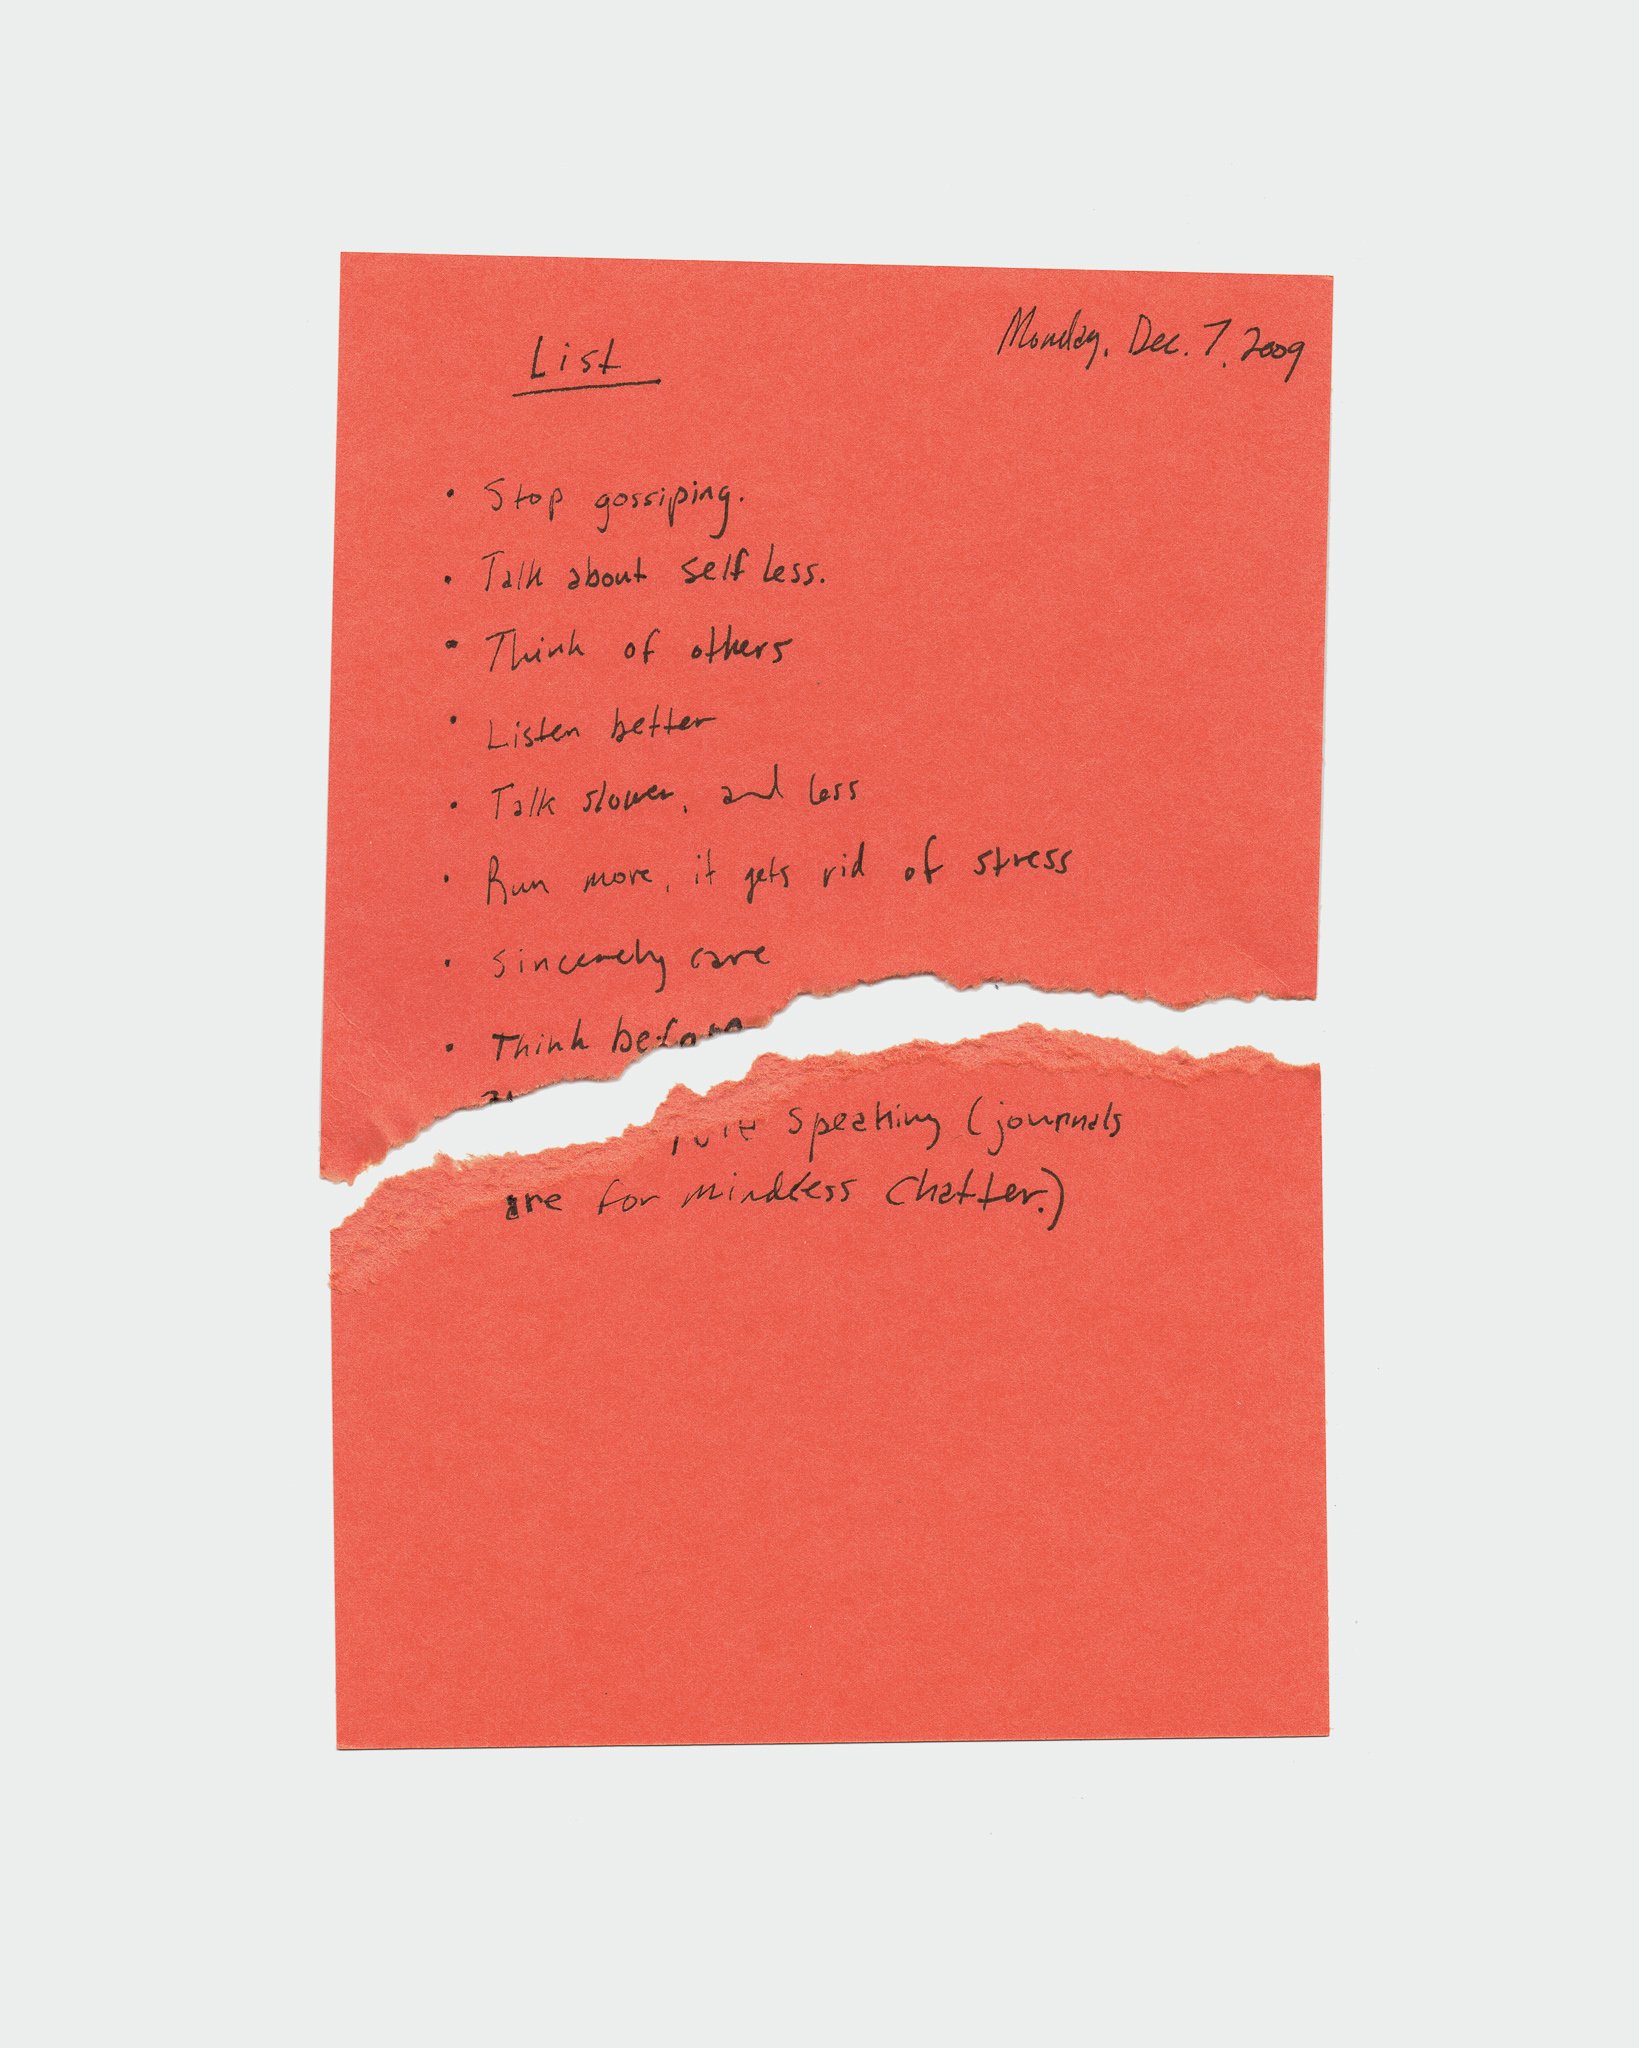 List
Monday, Dec. 7, 2009
• Stop gossiping.
• Talk about self less.
• Think of others
• Listen better
• Talk slower, and less
• Run more, it gets rid of stress
• sincerely care
• Think before
speaking (journals
are for mindless chatter.)